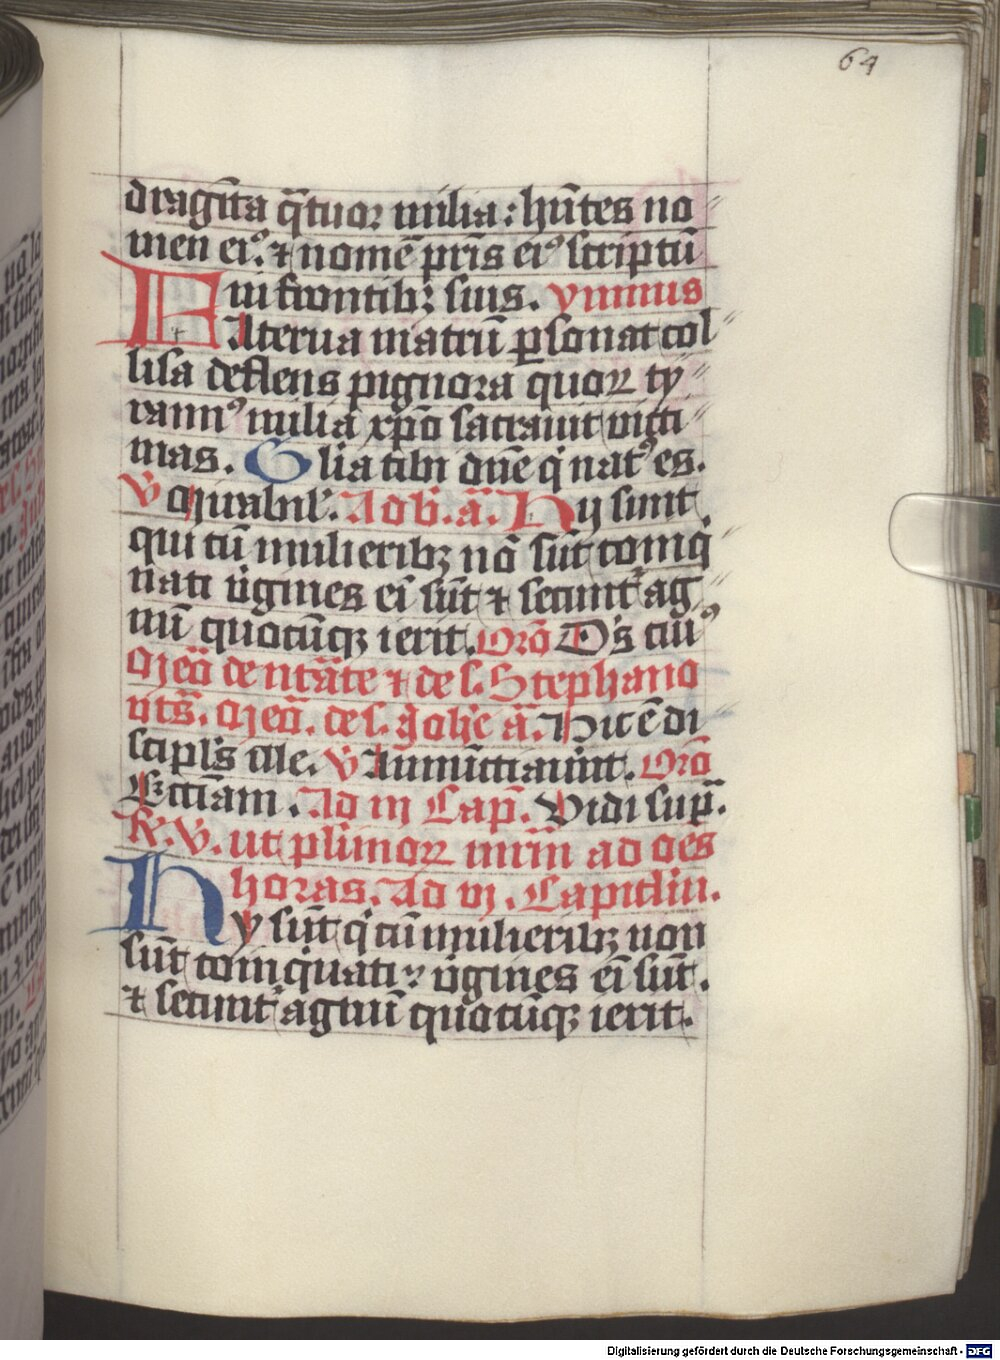 64
dragīta q̄tuor milia: hn̄tes no
men ei⁹ ⁊ nomē pr̄is ei⁹ scriptū
in frontibꝫ suis. ymnus
E Alterna matrū ꝑsonat col
lisa deflens pignora quoꝝ ty
rann⁹ milia xp̄o sacrauit victi
mas. Glia tibi dn̄e q̇ nat⁹ es.
V̇ Mirabil'. Ad b̄. a̅. Hij sunt
qui cū mulieribꝫ nō sūt coinq̇
nati v̇gines eī sūt ⁊ secunt᷑ ag
nū quocūqꝫ ierit. Orō D's cui⁹
Mēō de nt̄ate ⁊ de s. Stephano
nt̄s. Mēō. de s. Joh̄e a̅. Hic ē di
scipl's ille. V̇ Annūciauīt. Orō
Ecc̄iam. Ad iij Cap̄. Vidi sup̄.
R̄. V̇. ut plīmoꝝ mr̄m ad oēs
horas. Ad vj. Capitl'm.
Hy sūt q̇ cū mulieribꝫ non
sūt coinq̇nati: v̇gines eī sūt.
⁊ secunt᷑ agnū quocūqꝫ ierit.
Digitalisierung gefördert durch die Deutsche Forschungsgemeinschaft - DFG